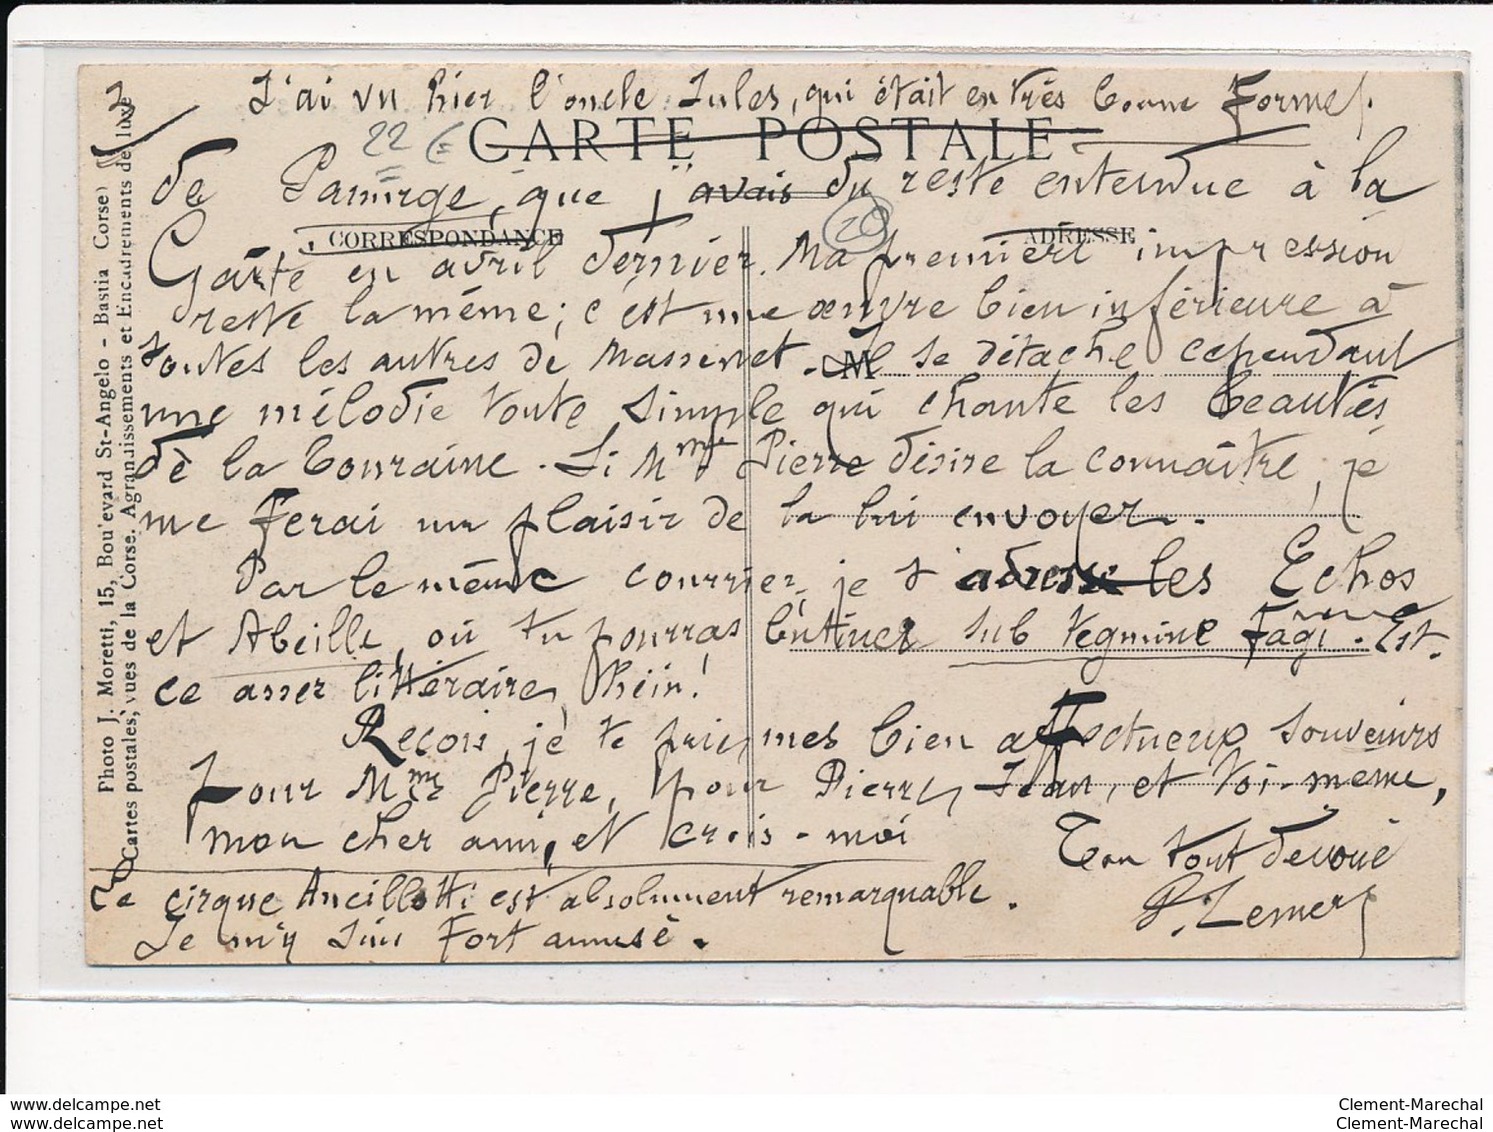 J'ai vu hier l'oncle Jules, qui était en très bonne forme.
2
22 €
CARTE POSTALE
de Panurge, que j'avais du reste entendue à la
20
CORRESPONDANCE
ADRESSE
Gaîté en avril dernier. Ma première impression
reste la même; c'est une œuvre bien inférieure à
toutes les autres de Massenet. Il se détache cependant
M
une mélodie toute simple qui chante les beautés
de la Touraine. Si Mme Pierre désire la connaître, je
me ferai un plaisir de la lui envoyer.
Par le même courrier, je t'adresse les Echos
et Abeille, où tu pourras butiner sub tegmine fagi. Est-
ce assez littéraire, hein!
Reçois, je te prie, mes bien affectueux souvenirs
pour Mme Pierre, pour Pierre, Jean, et toi-même,
mon cher ami, et crois-moi
Ton tout dévoué
Le cirque Ancillotti est absolument remarquable.
Je m'y suis fort amusé.
Photo J. Moretti, 15, Boulevard St-Angelo - Bastia (Corse)
Cartes postales, vues de la Corse. Agrandissements et Encadrements de luxe
Clement-Marechal
Clement-Marechal
Clement-Marechal
Clement-Marechal